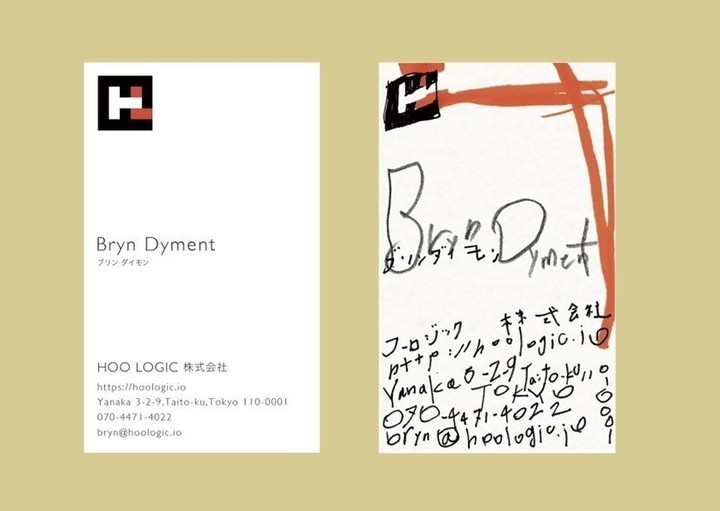 Bryn Dyment
ブリン ダイモン
HOO LOGIC 株式会社
https://hoologic.io
Yanaka 3-2-9,Taito-ku,Tokyo 110-0001
070-4471-4022
bryn@hoologic.io
Bryn Dyment
ブリンダイモン
フーロジック 株式会社
http://hoologic.io
Yanaka 3-2-9 Taito-ku, 110-0001
TOKYO
070-4471-4022
bryn@hoologic.io